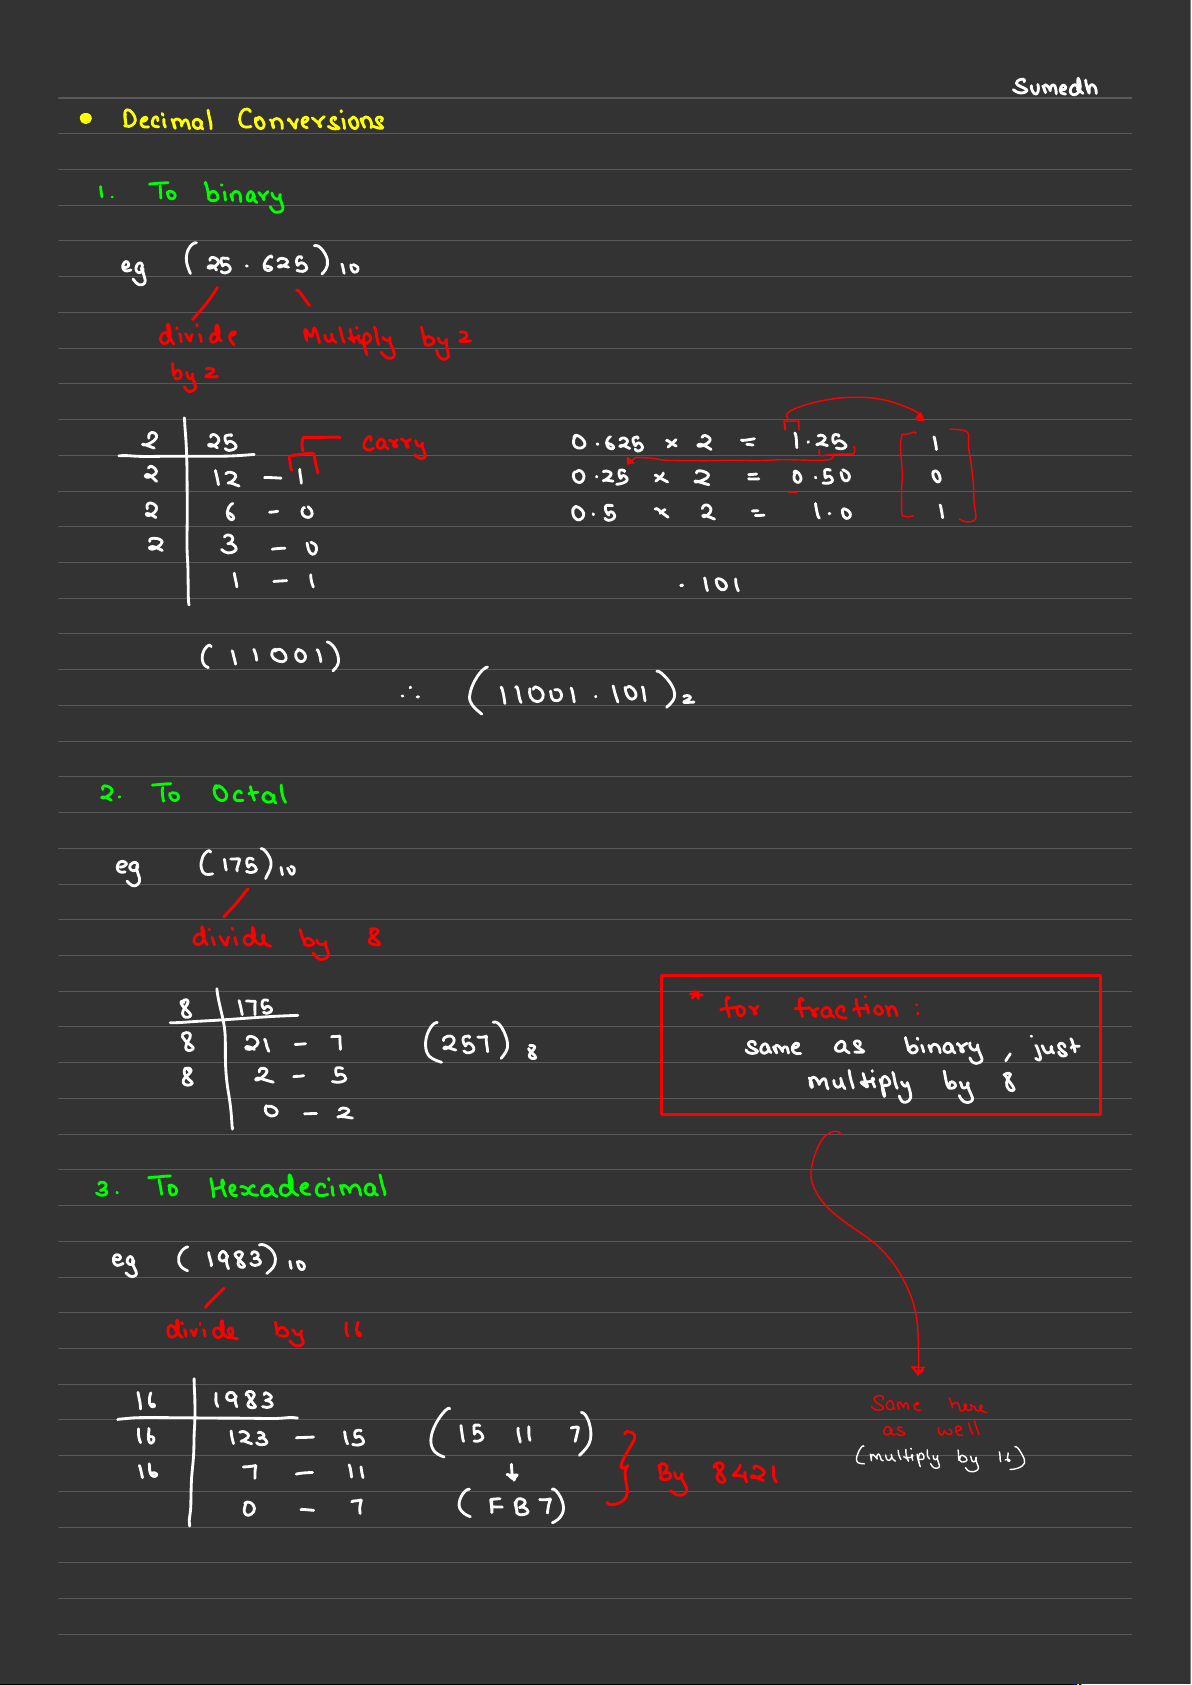 Sumedh
• Decimal Conversions
1. To binary
eg (25.625)10
divide Multiply by 2
by 2
2 | 25
carry
2 | 12 - 1
2 | 6 - 0
2 | 3 - 0
1 - 1
0.625 × 2 = 1.25 1
0.25 × 2 = 0.50 0
0.5 × 2 = 1.0 1
.101
(11001)
∴ (11001.101)2
2. To Octal
eg (175)10
divide by 8
8 | 175
8 | 21 - 7
8 | 2 - 5
0 - 2
(257)8
* for fraction:
same as binary, just
multiply by 8
3. To Hexadecimal
eg (1983)10
divide by 16
16 | 1983
16 | 123 - 15
16 | 7 - 11
0 - 7
(15 11 7)
↓
(F B 7)
By 8421
Same here
as well
(multiply by 16)